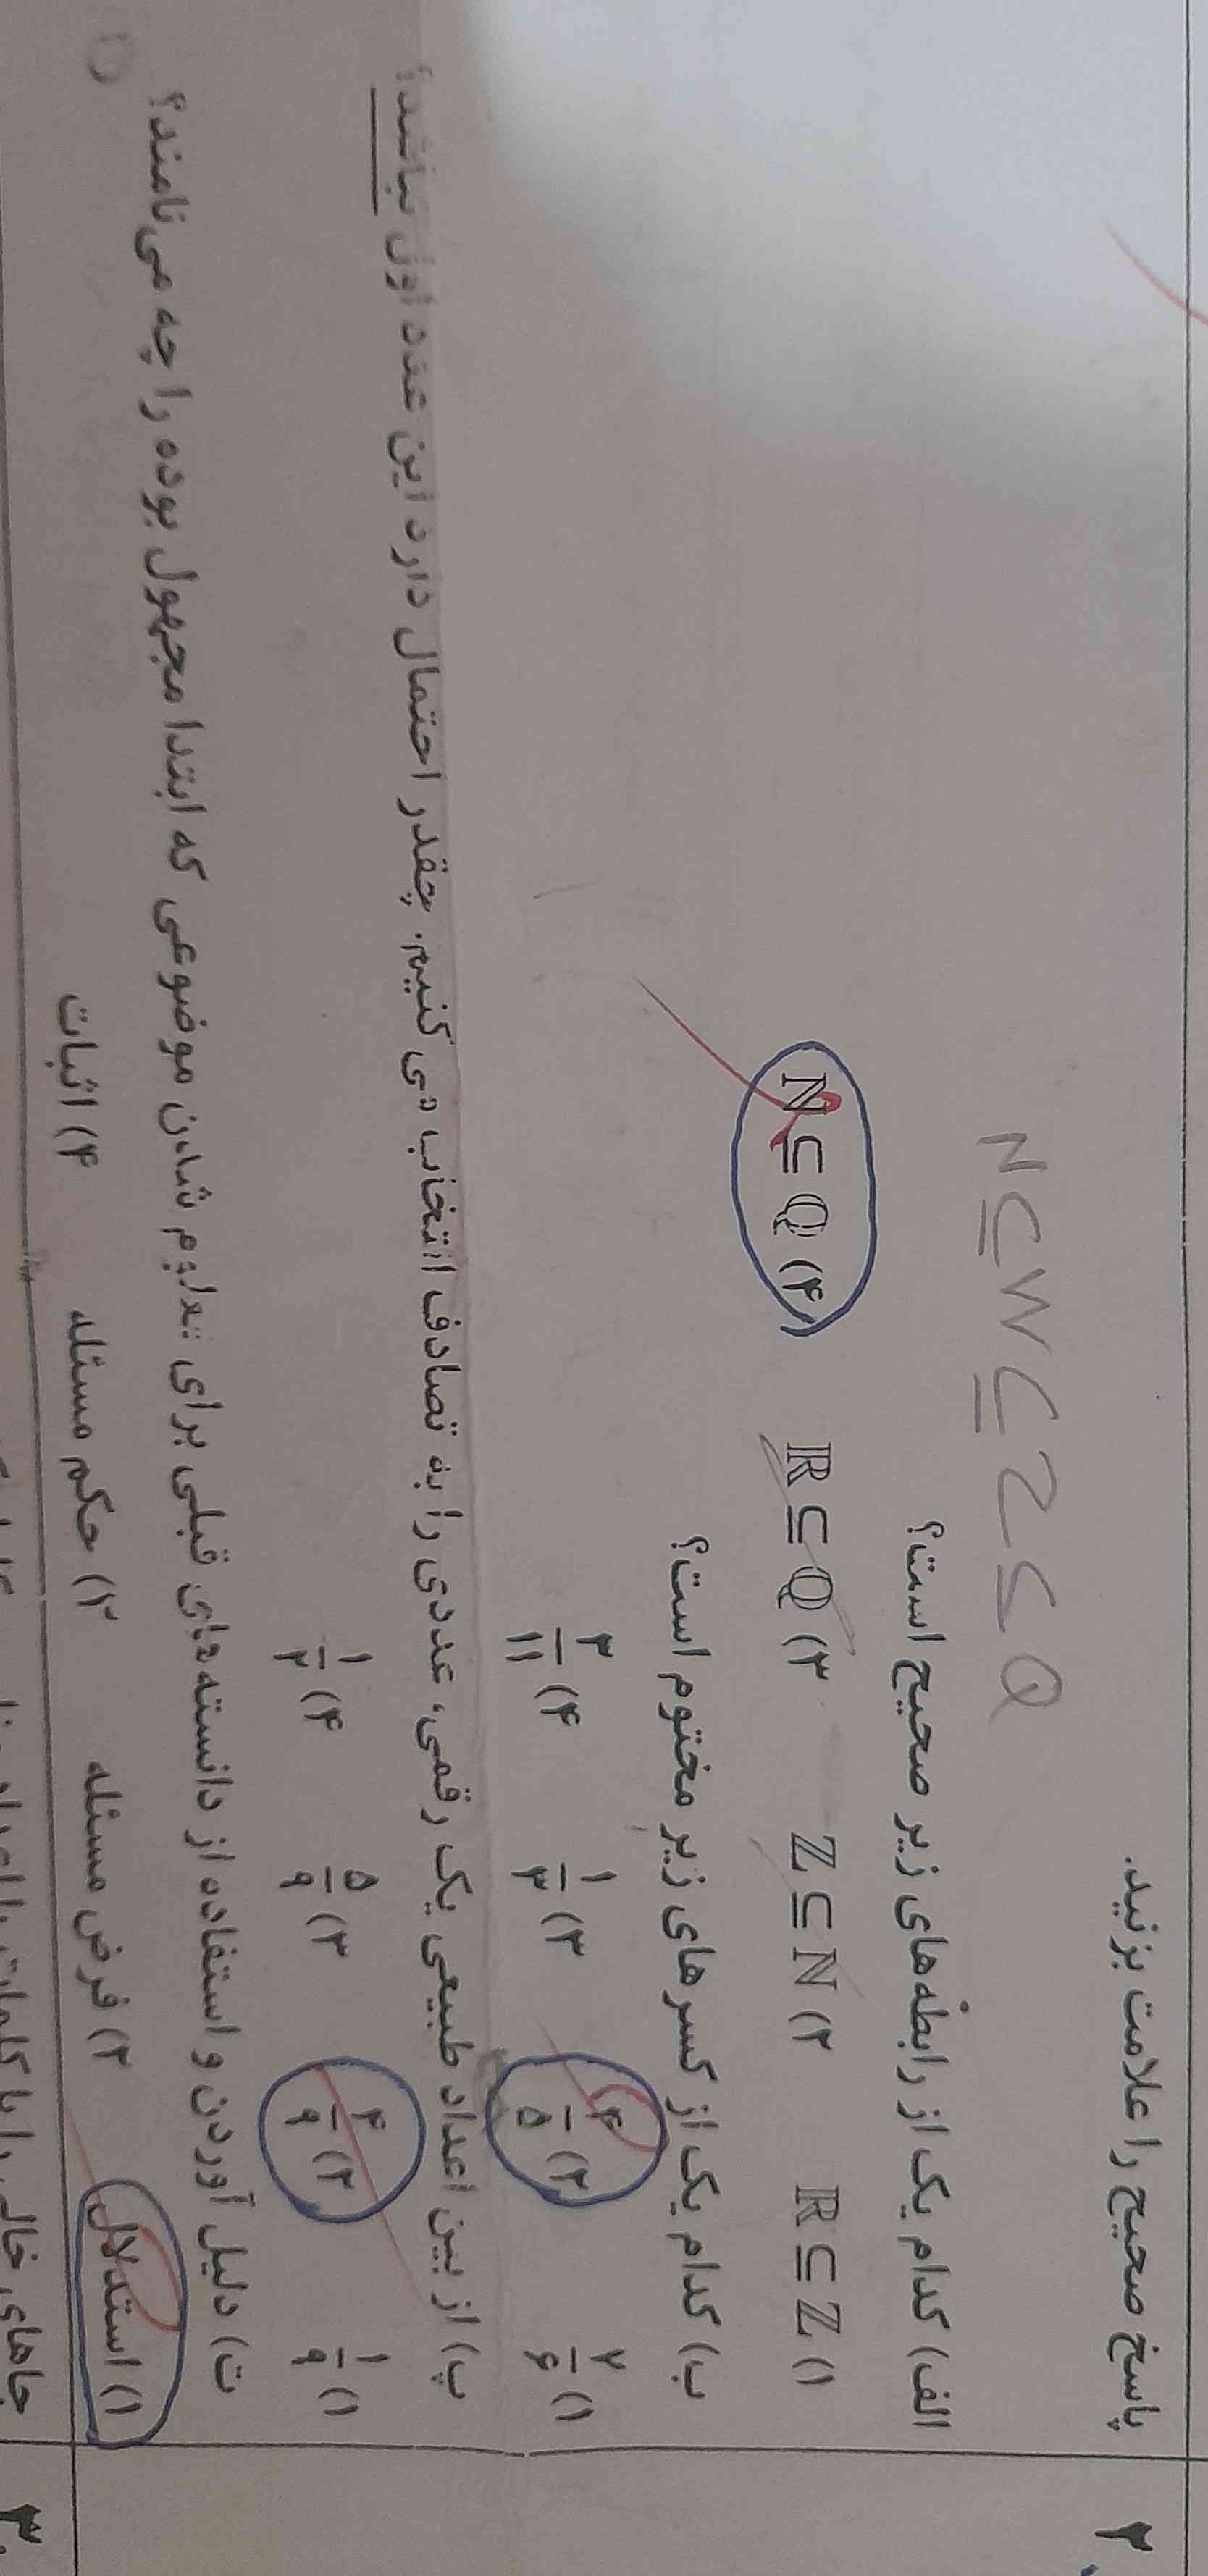 ۲
پاسخ صحیح را علامت بزنید.
N ⊆ W ⊆ Z ⊆ Q
الف) کدام یک از رابطه‌های زیر صحیح است؟
۱) ℝ ⊆ ℤ ۲) ℤ ⊆ ℕ ۳) ℝ ⊆ ℚ ۴) ℕ ⊆ ℚ
ب) کدام یک از کسرهای زیر مختوم است؟
۱) ۷/۶ ۲) ۴/۵ ۳) ۱/۳ ۴) ۳/۱۱
پ) از بین اعداد طبیعی یک رقمی، عددی را به تصادف انتخاب می کنیم. چقدر احتمال دارد این عدد اول نباشد؟
۱) ۱/۹ ۲) ۴/۹ ۳) ۵/۹ ۴) ۱/۳
ت) دلیل آوردن و استفاده از دانسته‌های قبلی برای معلوم شدن موضوعی که ابتدا مجهول بوده را چه می‌نامند؟
۱) استدلال ۲) فرض مسئله ۳) حکم مسئله ۴) اثبات
۳
جاهای خالی را با کلمات یا اعداد